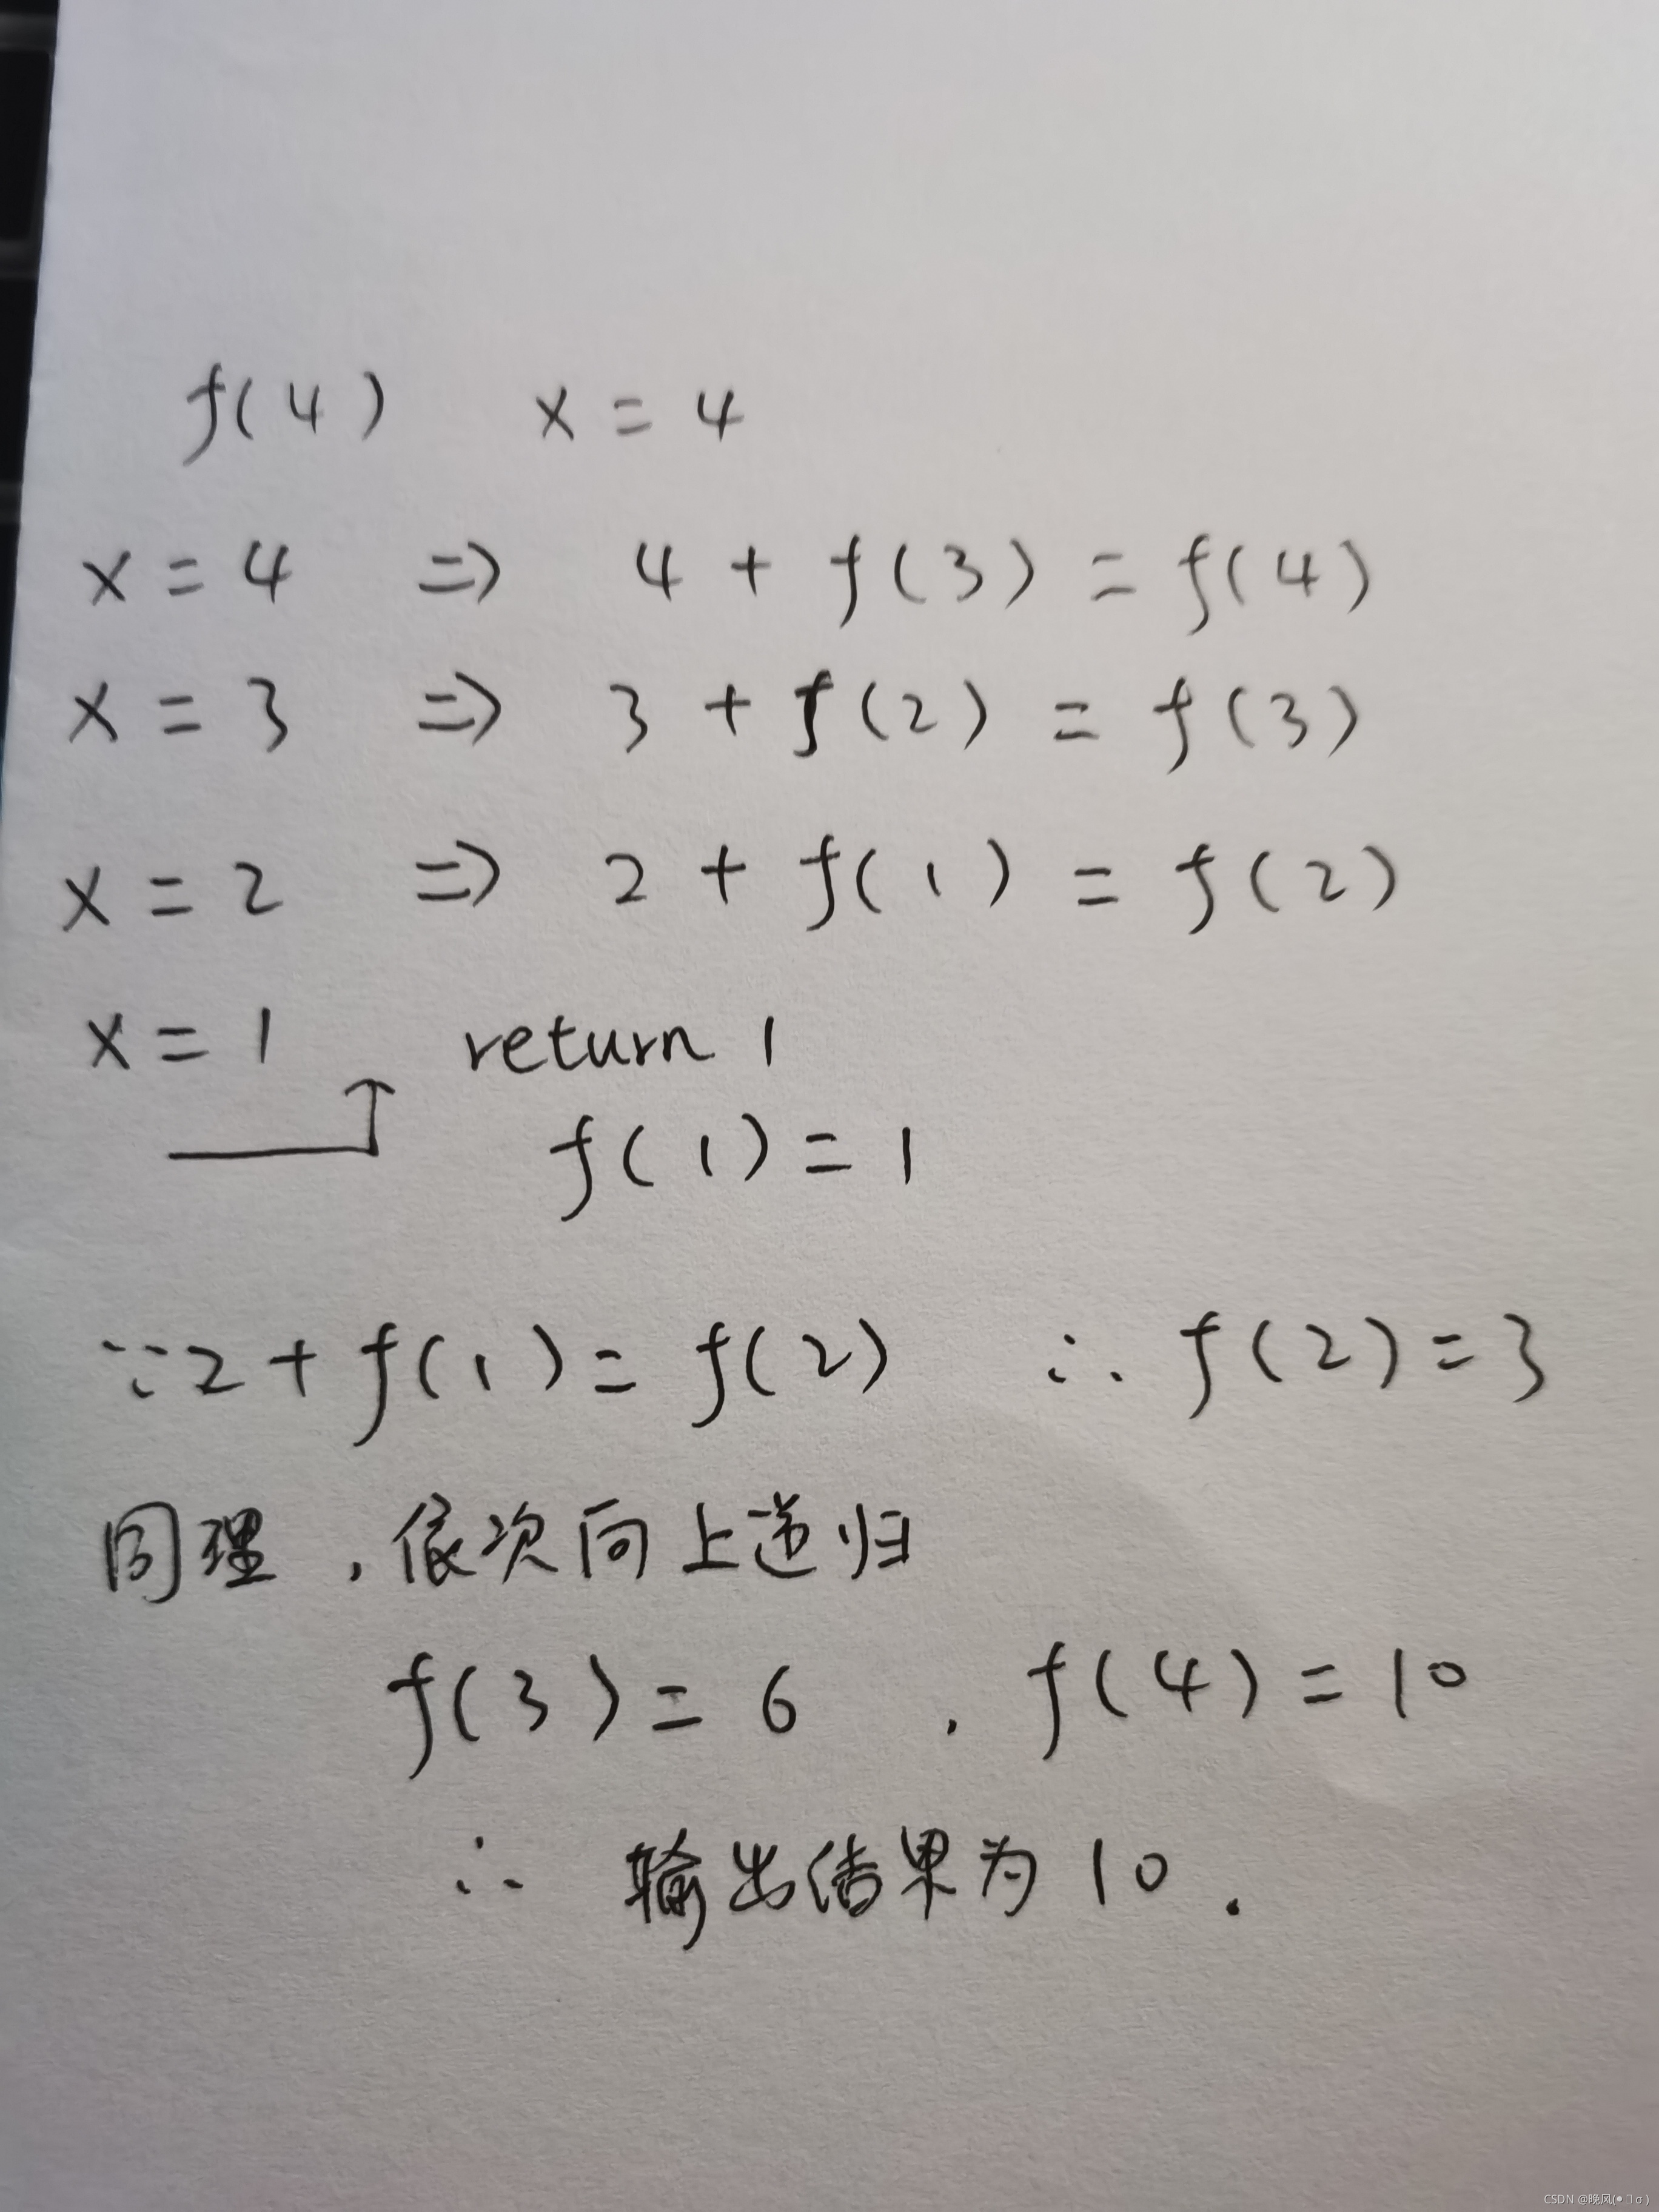 f(4) x = 4
x = 4 => 4 + f(3) = f(4)
x = 3 => 3 + f(2) = f(3)
x = 2 => 2 + f(1) = f(2)
x = 1 return 1
f(1) = 1
∵2 + f(1) = f(2) ∴ f(2) = 3
同理，依次向上递归
f(3) = 6 ，f(4) = 10
∴ 输出结果为 10 .
CSDN @晚风(